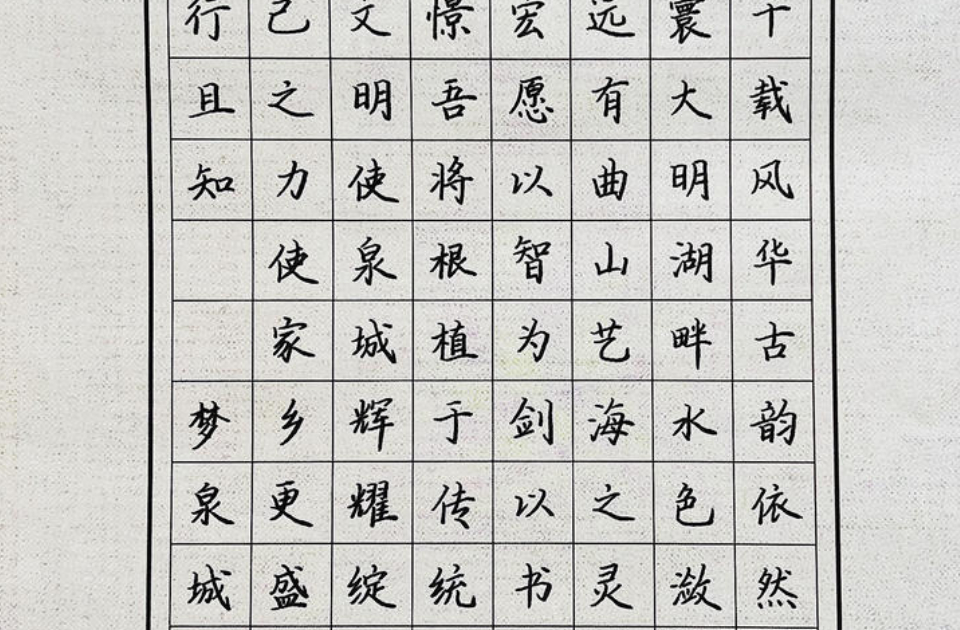 千载风华古韵依然
寰大明湖畔水色潋
远有曲山艺海之灵
宏愿以智为剑以书
憬吾将根植于传统
文明使泉城辉耀绽
己之力使家乡更盛
行且知梦泉城